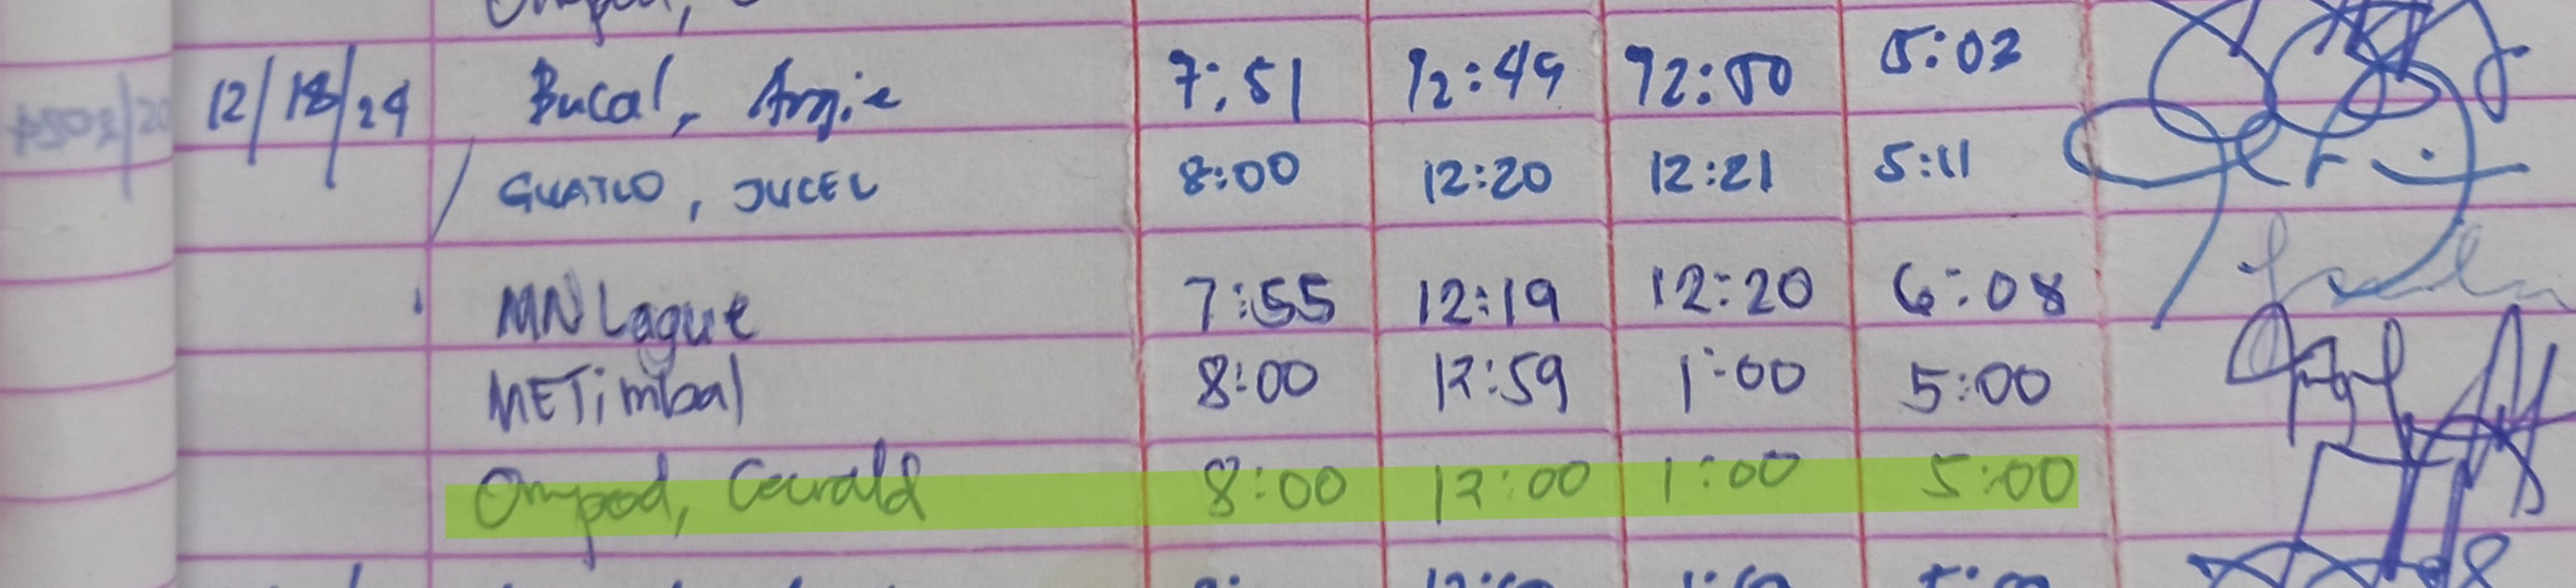 12/18/24 Bucal, Angie 7:51 12:49 12:50 5:02
GUATLO, JUCEL 8:00 12:20 12:21 5:11
MN Lague 7:55 12:19 12:20 6:08
METimbal 8:00 12:59 1:00 5:00
Ompod, Gerald 8:00 12:00 1:00 5:00